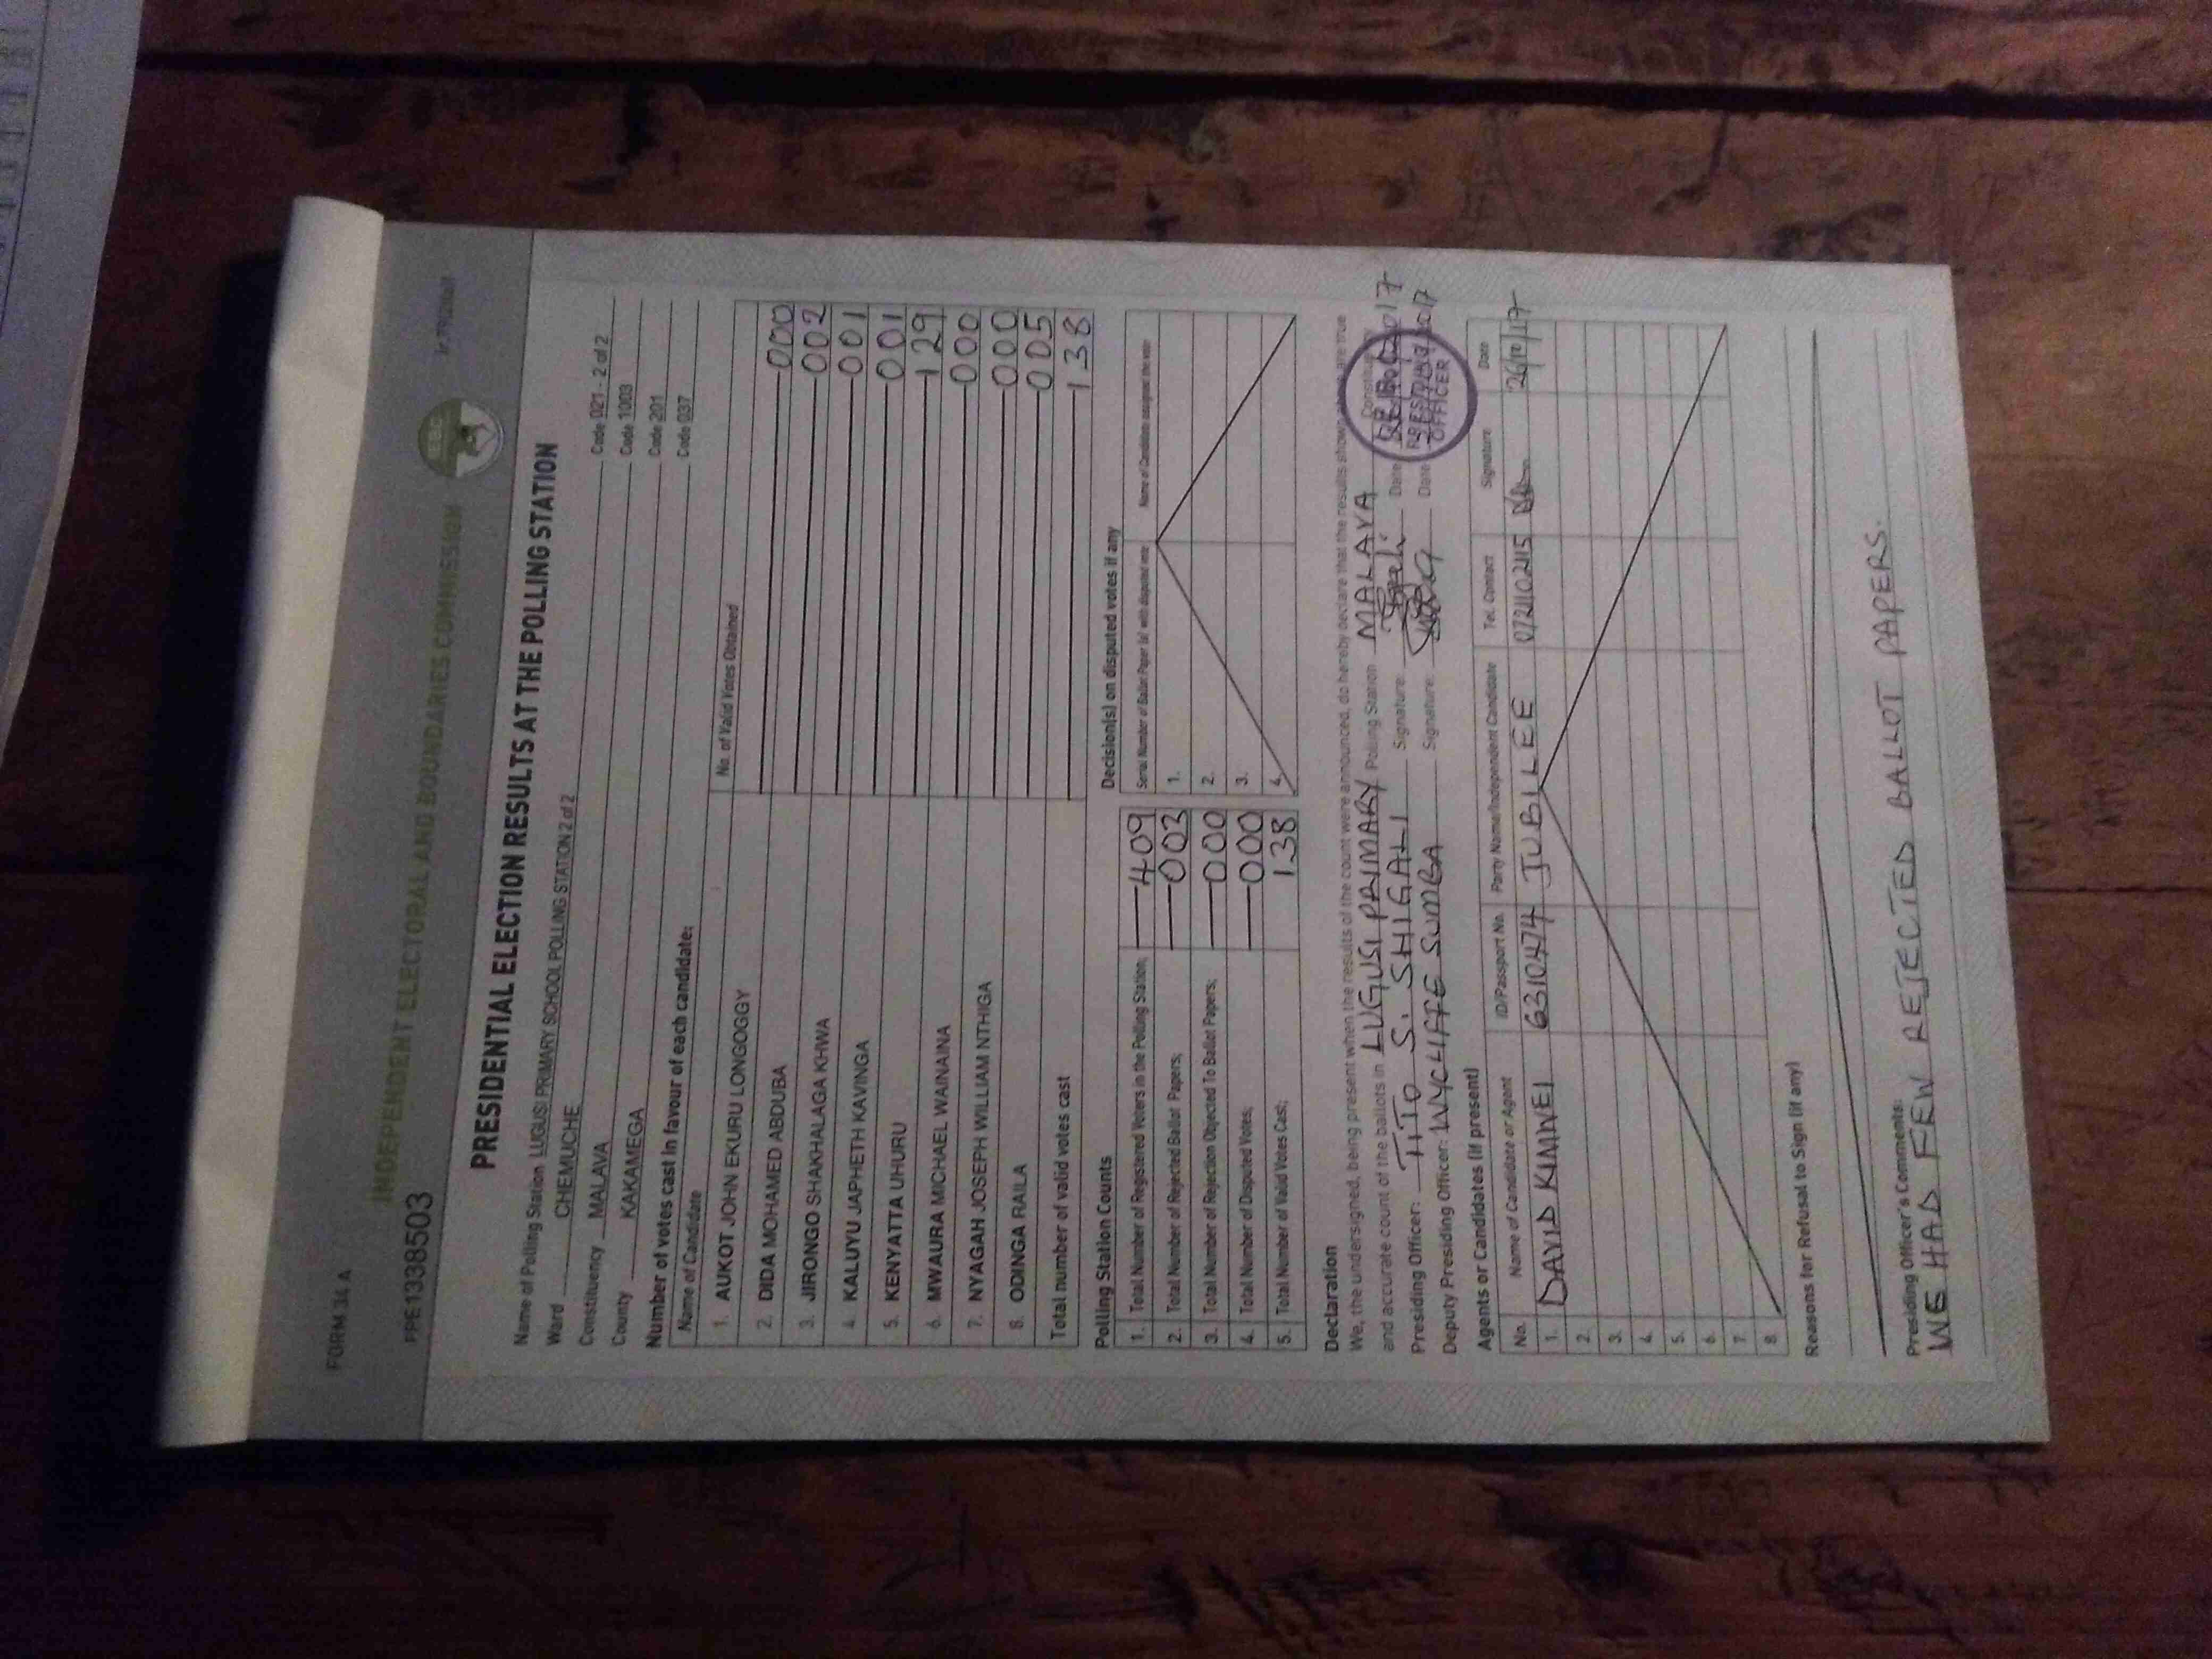 FORM 34 A
INDEPENDENT ELECTORAL AND BOUNDARIES COMMISSION
IEBC
PPE1338503
PRESIDENTIAL ELECTION RESULTS AT THE POLLING STATION
Name of Polling Station LUGUSI PRIMARY SCHOOL POLLING STATION 2 of 2 Code 021 - 2 of 2
Ward CHEMUCHE Code 1003
Constituency MALAVA Code 201
County KAKAMEGA Code 037
Number of votes cast in favour of each candidate:
Name of Candidate No. of Valid Votes Obtained
1. AUKOT JOHN EKURU LONGOGGY 000
2. DIDA MOHAMED ABDUBA 002
3. JIRONGO SHAKHALAGA KHWA 001
4. KALUYU JAPHETH KAVINGA 001
5. KENYATTA UHURU 129
6. MWAURA MICHAEL WAINAINA 000
7. NYAGAH JOSEPH WILLIAM NTHIGA 000
8. ODINGA RAILA 005
Total number of valid votes cast 138
Polling Station Counts
1. Total Number of Registered Voters in the Polling Station; 409
2. Total Number of Rejected Ballot Papers; 003
3. Total Number of Rejection Objected To Ballot Papers; 000
4. Total Number of Disputed Votes; 000
5. Total Number of Valid Votes Cast; 138
Decision(s) on disputed votes if any
Serial Number of Ballot Paper (s) with disputed vote Name of Candidate assigned the vote
1.
2.
3.
4.
Declaration
We, the undersigned, being present when the results of the count were announced, do hereby declare that the results shown above are true
and accurate count of the ballots in LUGUSI PRIMARY Polling Station MALAVA Constituency
Presiding Officer: TITO S. SHIGALI Signature: Date 2017
Deputy Presiding Officer: WYCLIFFE SUMBA Signature: Date 2017
PRESIDING
OFFICER
Agents or Candidates (if present)
No. Name of Candidate or Agent ID/Passport No. Party Name/Independent Candidate Tel. Contact Signature Date
1. DAVID KIMWEI 6310474 JUBILEE 0721102115 26/10/17
2.
3.
4.
5.
6.
7.
8.
Reasons for Refusal to Sign (if any)
Presiding Officer's Comments:
WE HAD FEW REJECTED BALLOT PAPERS.